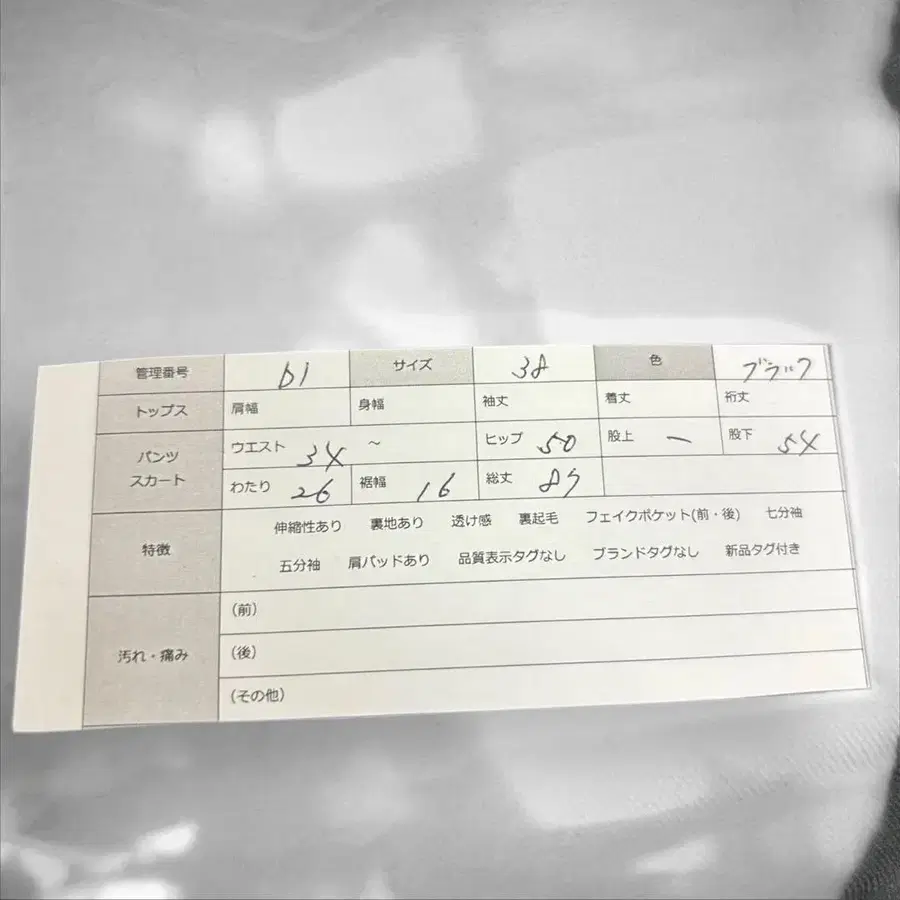 管理番号 61 サイズ 38 色 ブラック
トップス 肩幅 身幅 袖丈 着丈 裄丈
パンツ スカート ウエスト 34 ～ ヒップ 50 股上 ー 股下 54
わたり 26 裾幅 16 総丈
特徴 伸縮性あり 裏地あり 透け感 裏起毛 フェイクポケット(前・後) 七分袖
五分袖 肩パッドあり 品質表示タグなし ブランドタグなし 新品タグ付き
汚れ・痛み (前)
(後)
(その他)